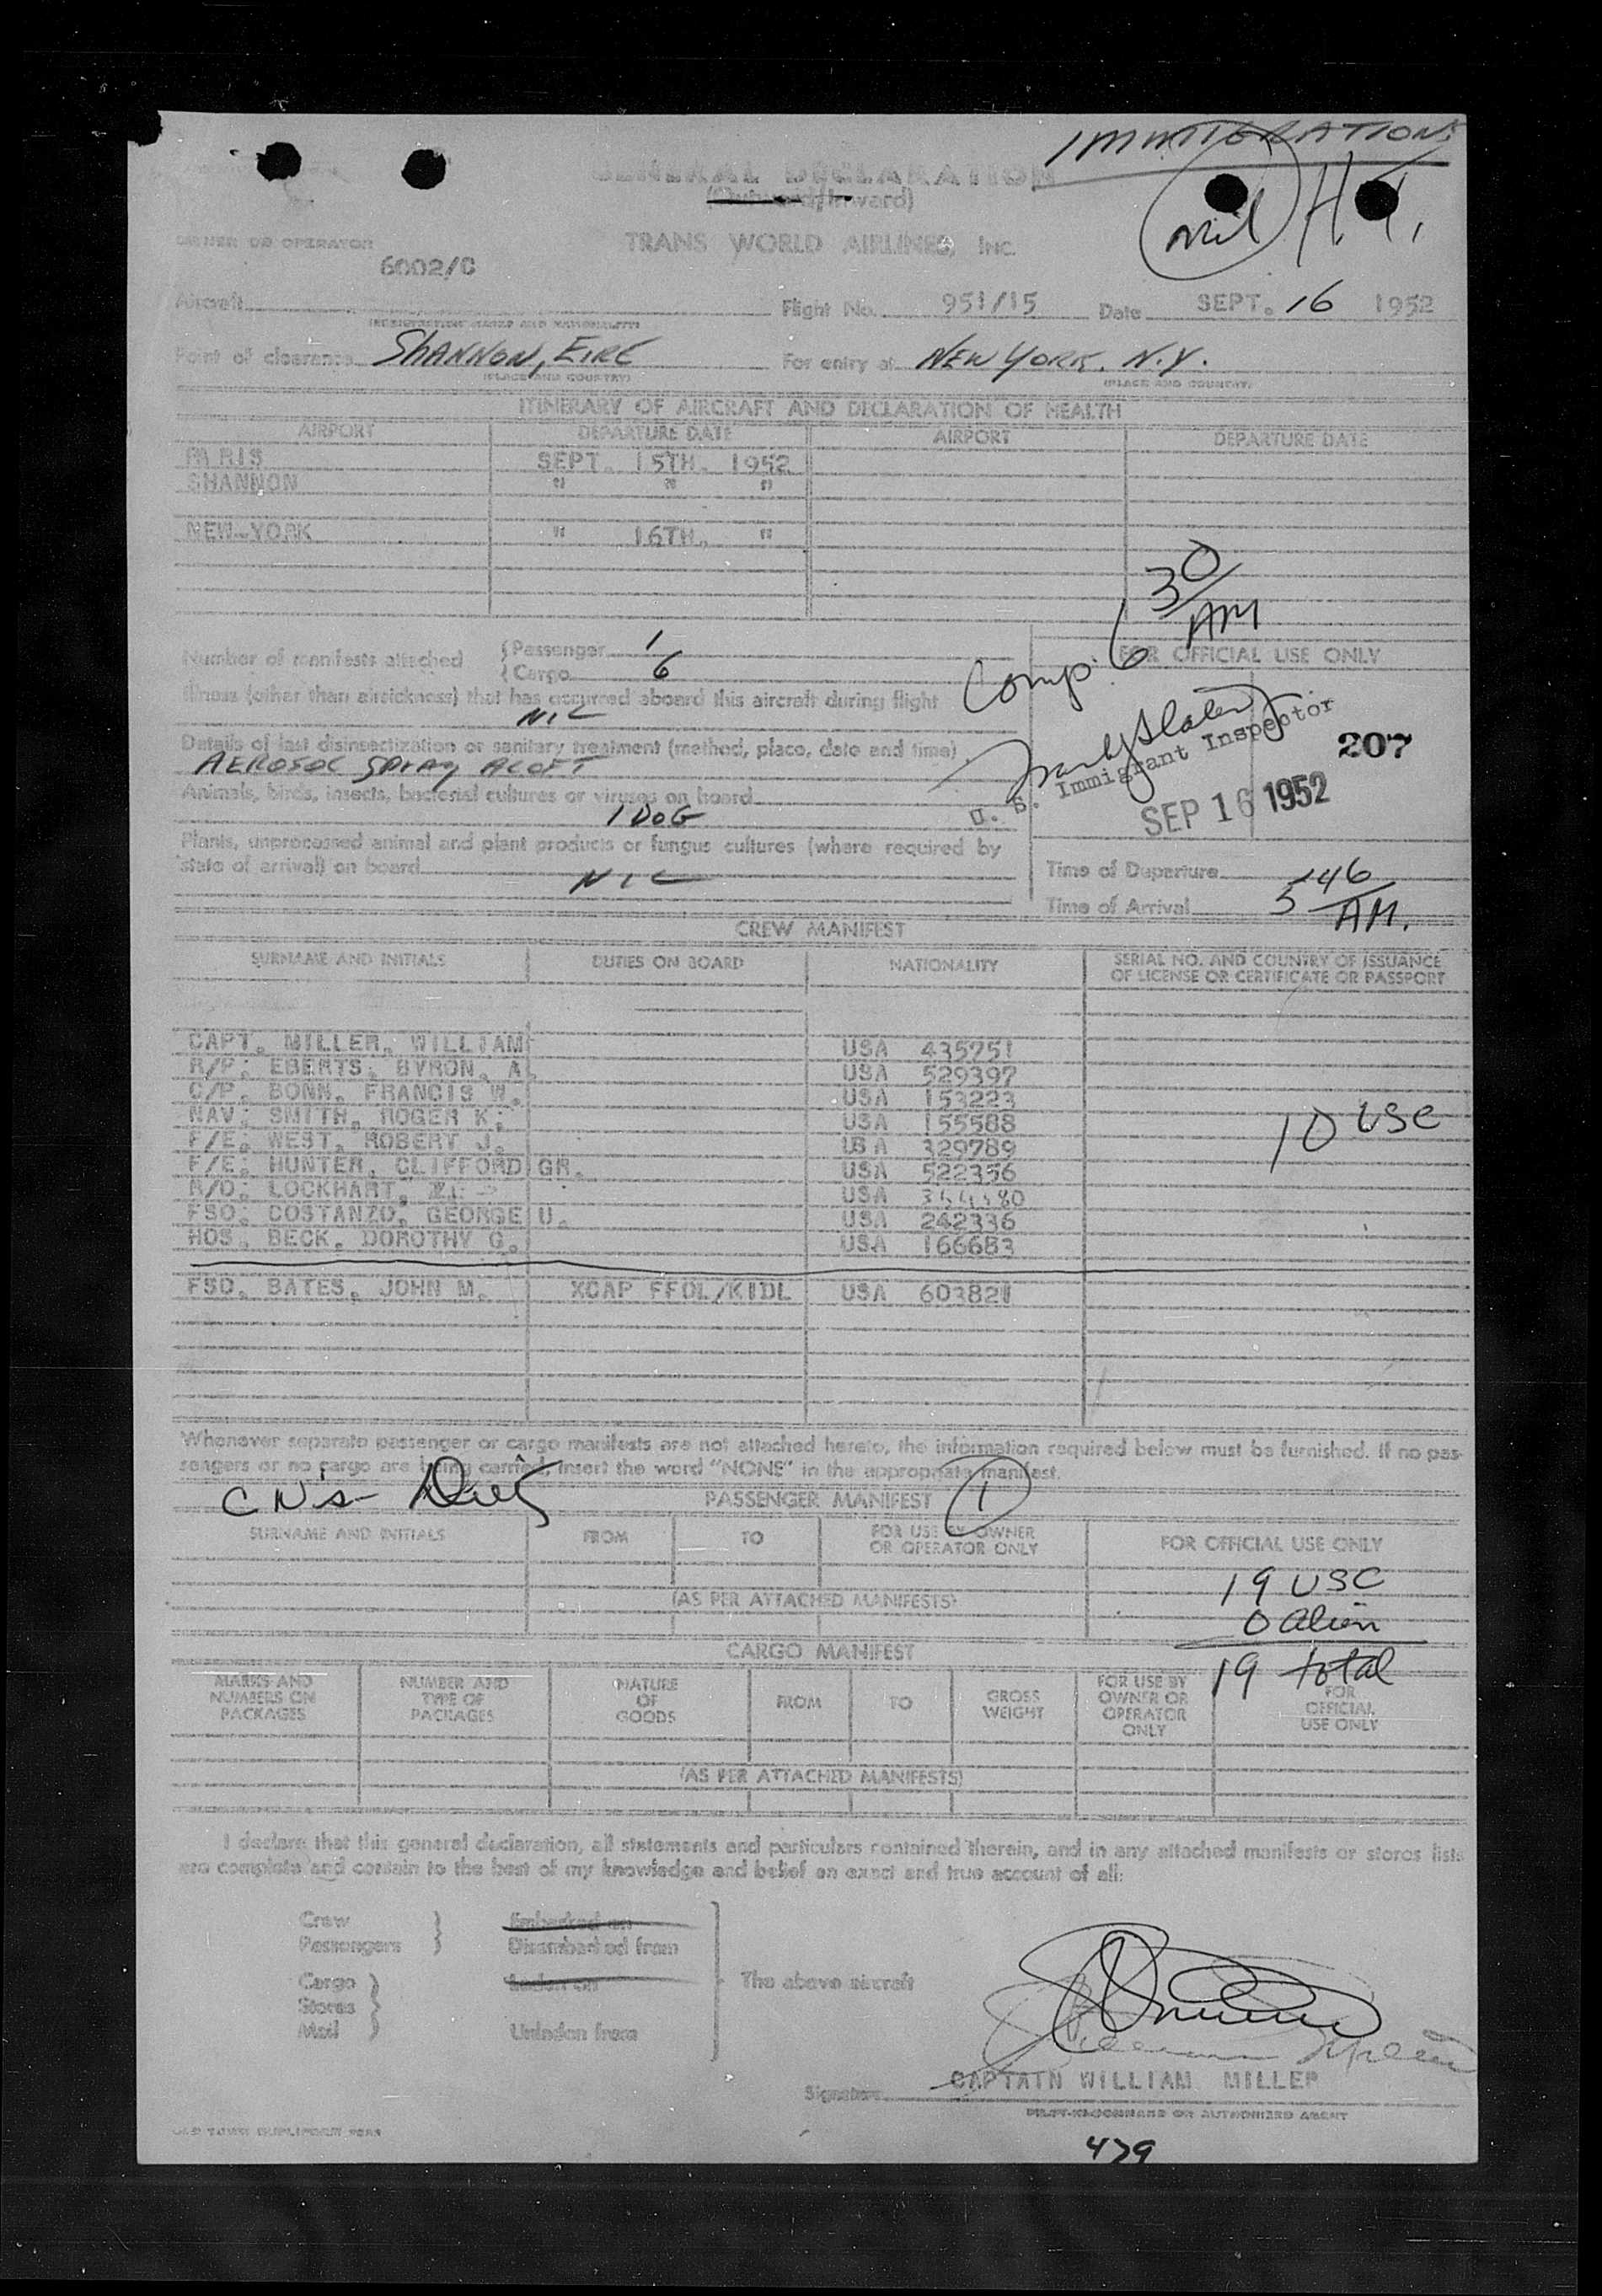 IMMIGRATION
GENERAL DECLARATION
(Outward/Inward)
mil H.T.
OWNER OR OPERATOR TRANS WORLD AIRLINES, INC.
6002/C
Aircraft Flight No. 951/15 Date SEPT. 16 1952
(REGISTRATION MARKS AND NATIONALITY)
Point of clearance SHANNON, EIRE For entry at NEW YORK, N.Y.
(PLACE AND COUNTRY) (PLACE AND COUNTRY)
ITINERARY OF AIRCRAFT AND DECLARATION OF HEALTH
AIRPORT DEPARTURE DATE AIRPORT DEPARTURE DATE
PARIS SEPT. 15TH. 1952
SHANNON " " "
NEW-YORK " 16TH. "
Comp. 6 30/AM
Number of manifests attached { Passenger 1
{ Cargo 6
FOR OFFICIAL USE ONLY
Illness (other than airsickness) that has occurred aboard this aircraft during flight
NIL
Details of last disinsectization or sanitary treatment (method, place, date and time)
AEROSOL SPRAY ALOFT
U. S. Immigrant Inspector
207
SEP 16 1952
Animals, birds, insects, bacterial cultures or viruses on board
1 DOG
Plants, unprocessed animal and plant products or fungus cultures (where required by
state of arrival) on board
NIL
Time of Departure
Time of Arrival 5 46/AM.
CREW MANIFEST
SURNAME AND INITIALS DUTIES ON BOARD NATIONALITY SERIAL NO. AND COUNTRY OF ISSUANCE
OF LICENSE OR CERTIFICATE OR PASSPORT
CAPT. MILLER, WILLIAM USA 435751
R/P. EBERTS, BYRON, A. USA 529397
C/P. BONN, FRANCIS W. USA 153223
NAV. SMITH, ROGER K. USA 155588
10 USC
F/E. WEST, ROBERT J. USA 329789
F/E. HUNTER, CLIFFORD GR. USA 522356
R/O. LOCKHART, USA
FSO. COSTANZO, GEORGE U. USA 242336
HOS. BECK, DOROTHY G. USA 166683
FSO. BATES, JOHN M. XCAP FFOL/KIDL USA 603821
Whenever separate passenger or cargo manifests are not attached hereto, the information required below must be furnished. If no pas-
sengers or no cargo are being carried, insert the word "NONE" in the appropriate manifest.
CN's
PASSENGER MANIFEST 1
SURNAME AND INITIALS FROM TO FOR USE BY OWNER
OR OPERATOR ONLY FOR OFFICIAL USE ONLY
19 USC
(AS PER ATTACHED MANIFESTS)
0 alien
19 total
CARGO MANIFEST
MARKS AND
NUMBERS ON
PACKAGES
NUMBER AND
TYPE OF
PACKAGES
NATURE
OF
GOODS
FROM
TO
GROSS
WEIGHT
FOR USE BY
OWNER OR
OPERATOR
ONLY
FOR
OFFICIAL
USE ONLY
(AS PER ATTACHED MANIFESTS)
I declare that this general declaration, all statements and particulars contained therein, and in any attached manifests or stores lists
are complete and contain to the best of my knowledge and belief an exact and true account of all:
Crew } Embarked on
Passengers } Disembarked from
Cargo } Laden on The above aircraft
Stores }
Mail } Unladen from
Signature CAPTAIN WILLIAM MILLER
PILOT-IN-COMMAND OR AUTHORIZED AGENT
479